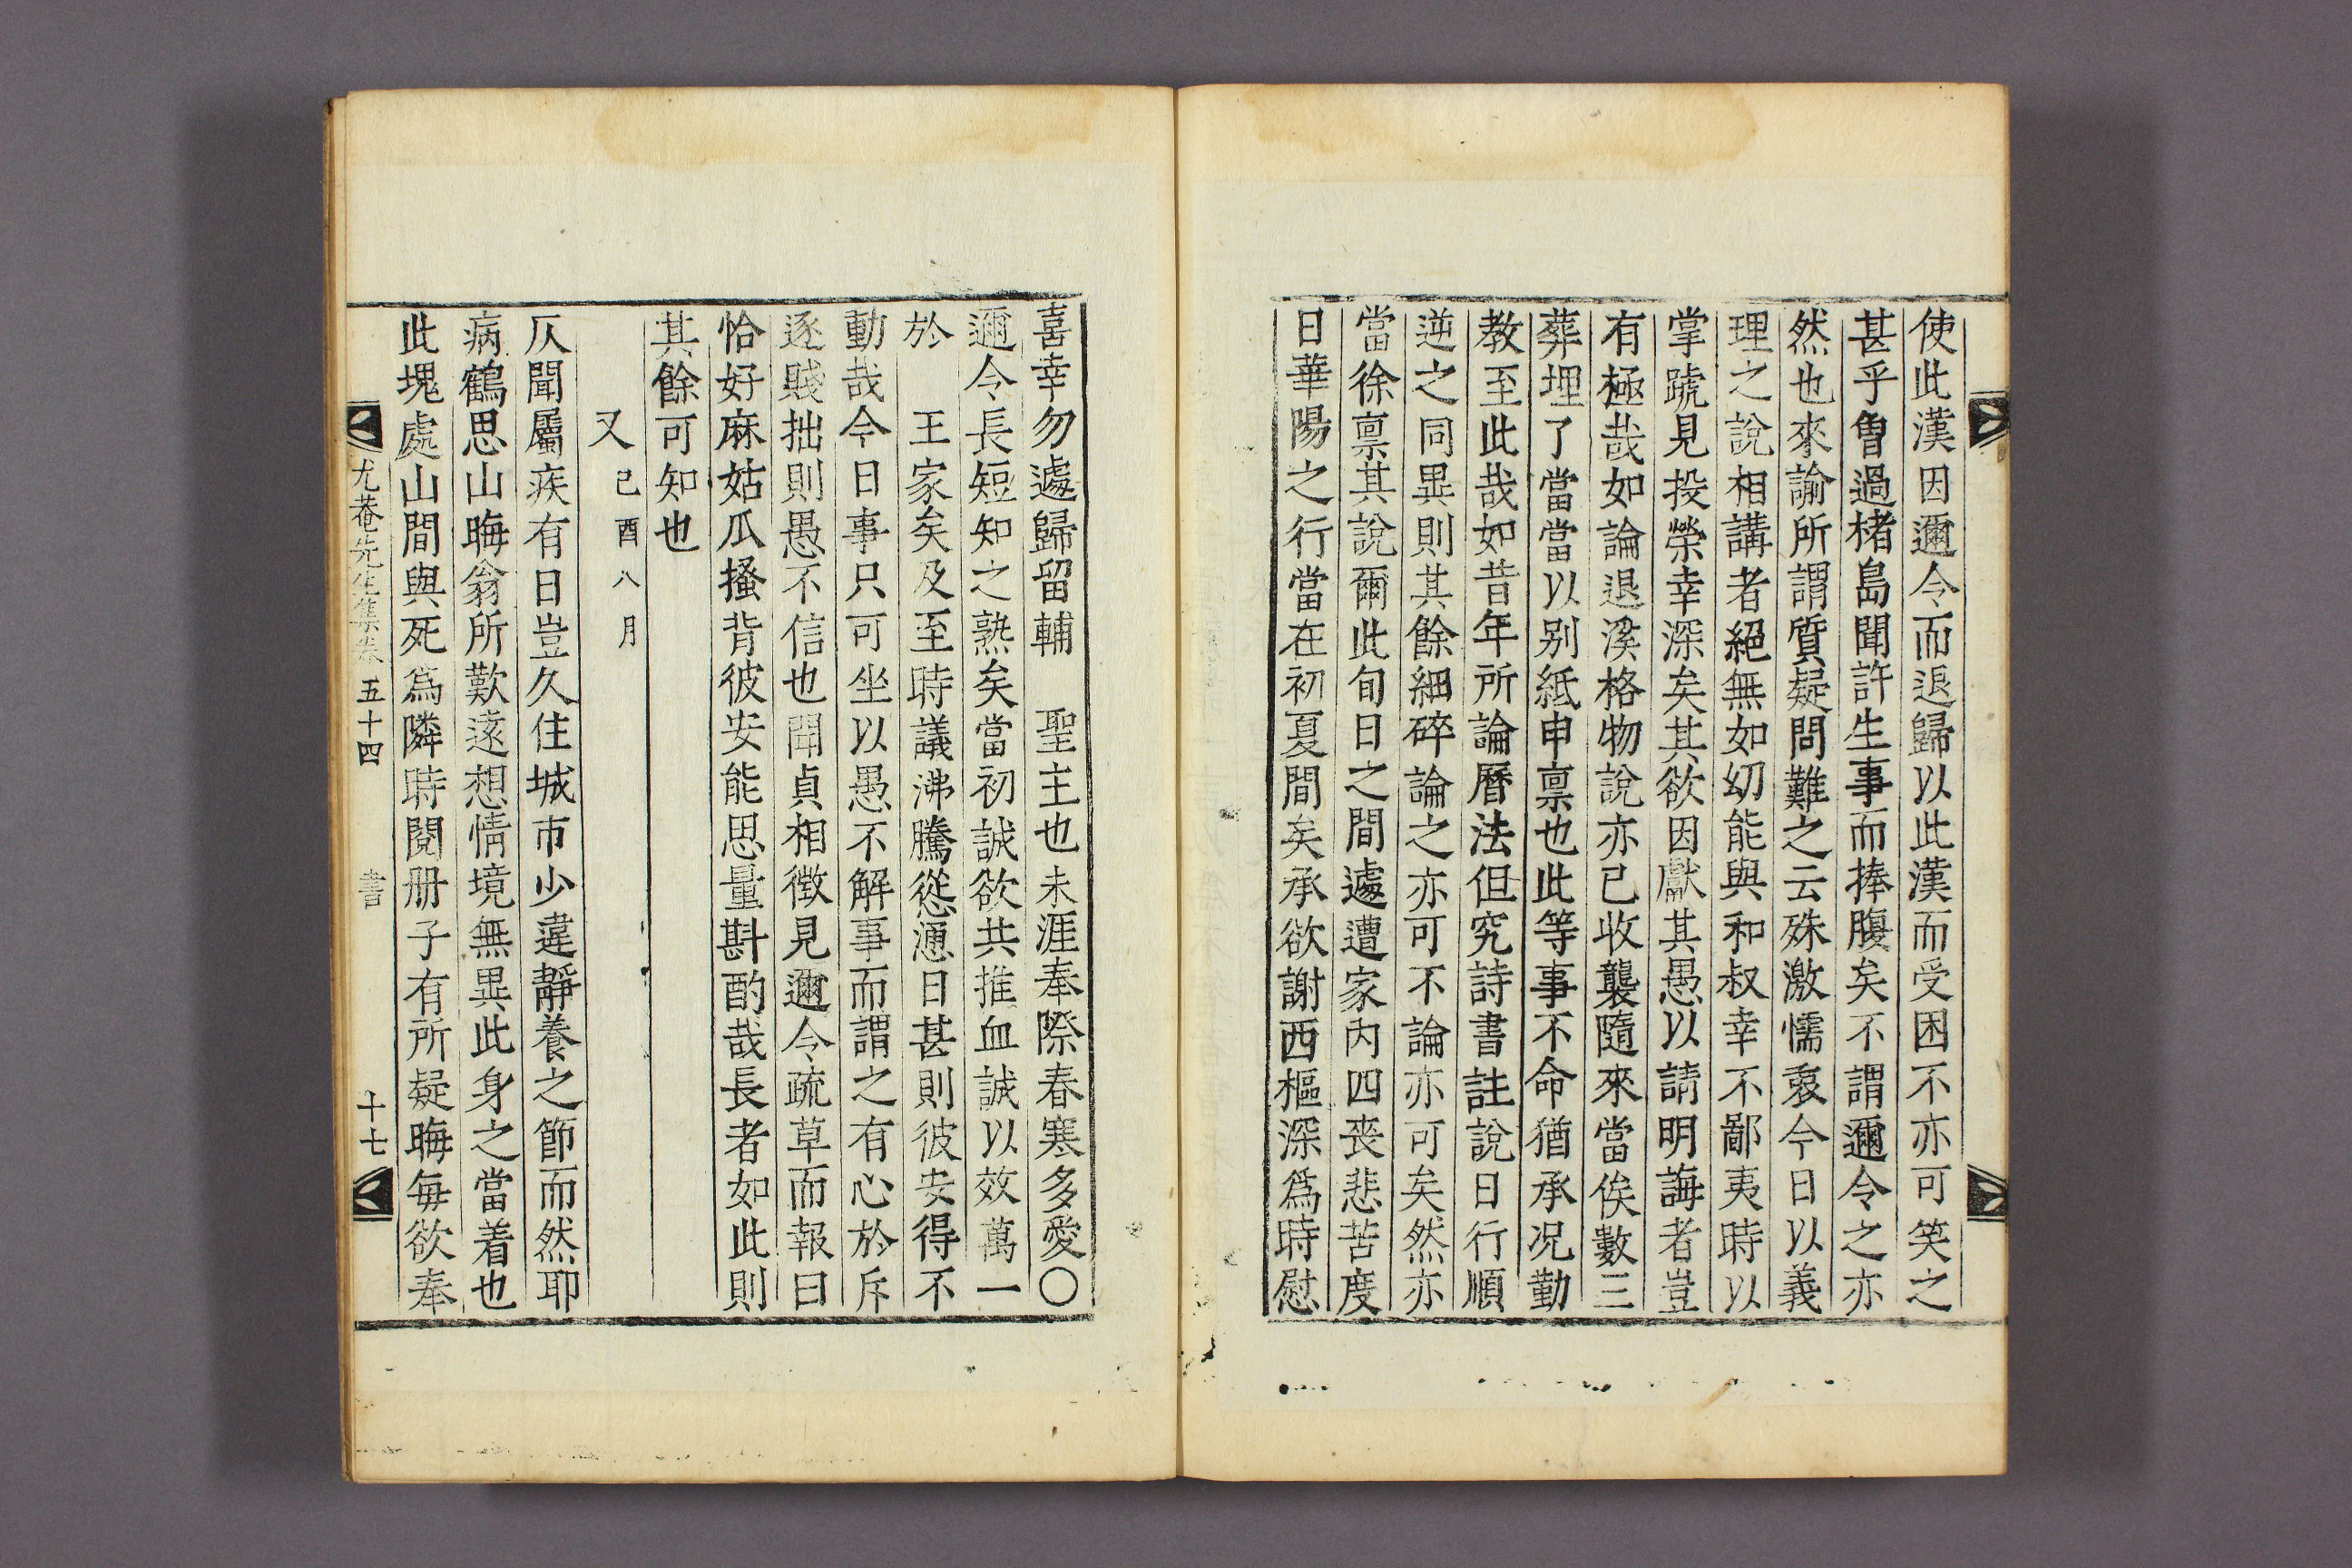 使此漢因邇令而退歸以此漢而受困不亦可笑之
甚乎曾過楮島聞許生事而捧腹矣不謂邇令之亦
然也來諭所謂質疑問難之云殊激懦衷今日以義
理之說相講者絕無如幼能與和叔幸不鄙夷時以
掌號見投榮幸深矣其欲因獻其愚以請明誨者豈
有極哉如論退溪格物說亦已收襲隨來當俟數三
葬埋了當當以別紙申禀也此等事不命猶承况勤
教至此哉如昔年所論曆法但究詩書註說日行順
逆之同異則其餘細碎論之亦可不論亦可矣然亦
當徐禀其說爾此旬日之間遽遭家內四喪悲苦度
日華陽之行當在初夏間矣承欲謝西樞深爲時慰
喜幸勿遽歸留輔 聖主也未涯奉際春寒多愛〇
邇令長短知之熟矣當初誠欲共推血誠以效萬一
於 王家矣及至時議沸騰慫慂日甚則彼安得不
動哉今日事只可坐以愚不解事而謂之有心於斥
逐賤拙則愚不信也聞貞相徵見邇令疏草而報曰
恰好麻姑瓜搔背彼安能思量斟酌哉長者如此則
其餘可知也
又 己酉八月
仄聞屬疾有日豈久住城市少違靜養之節而然耶
病鶴思山晦翁所歎遠想情境無異此身之當着也
此塊處山間與死爲隣時閱册子有所疑晦每欲奉
尤菴先生集卷五十四 書 十七